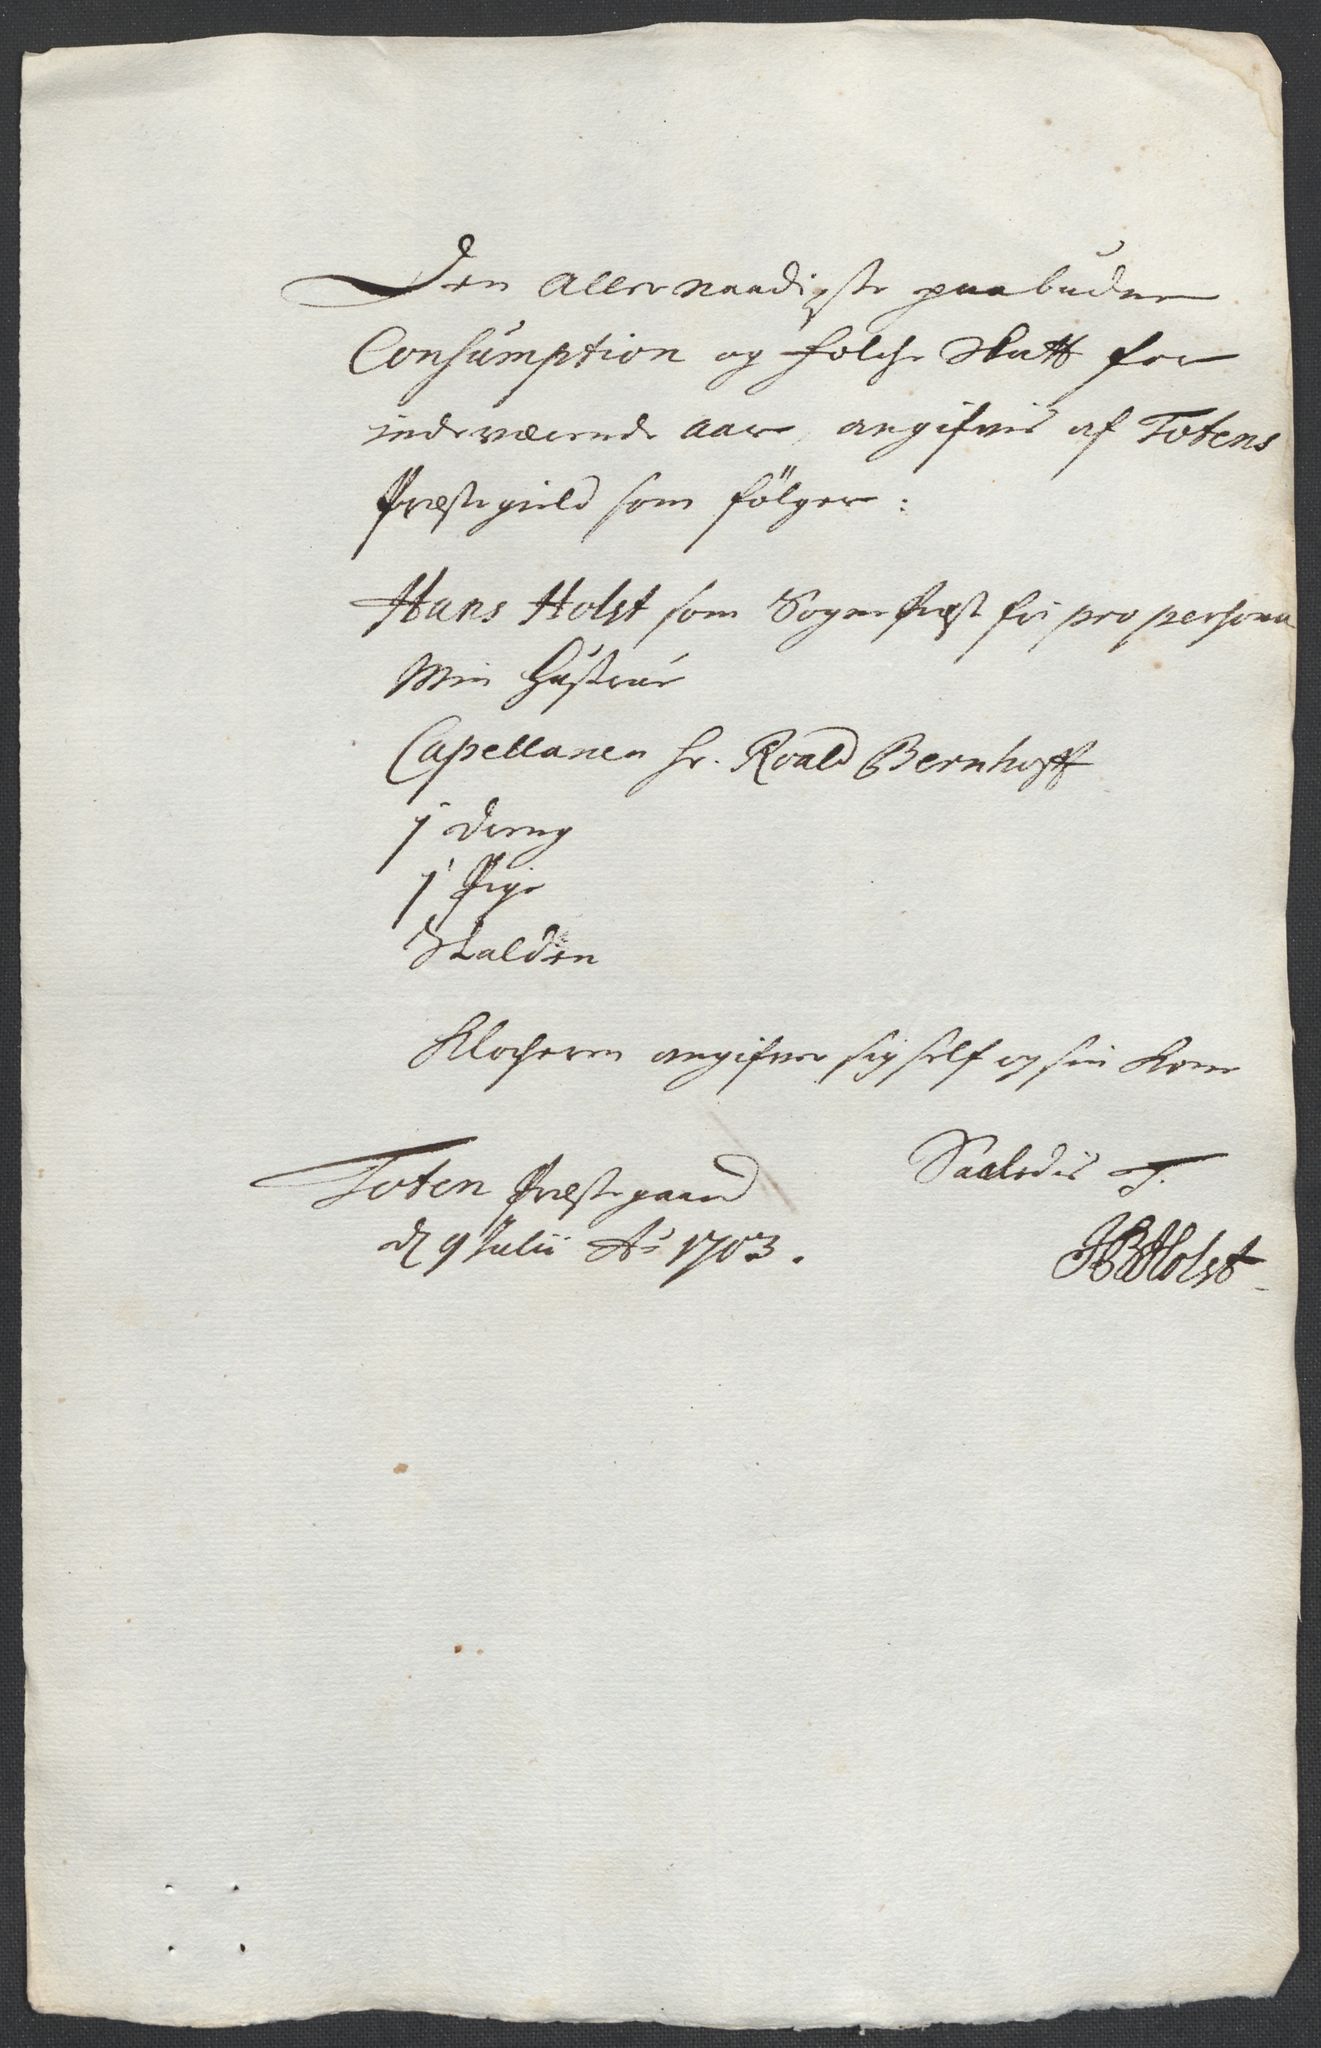 Den allernaadigste paabudne
Consumption og folche Skatt for
indeværende aar, angifvis af Totens
Præstegield som følger:
Hans Holst som Sogne Præst for pro persona
Min hustrue
Capellanen hr. Roald Bernhoff
1 dreng
1 Pige
Klocheren angifver sig self og sin kone
Toten Præstegaard
d 9 Julii Ao 1703.
Saaledis T.
HB Holst